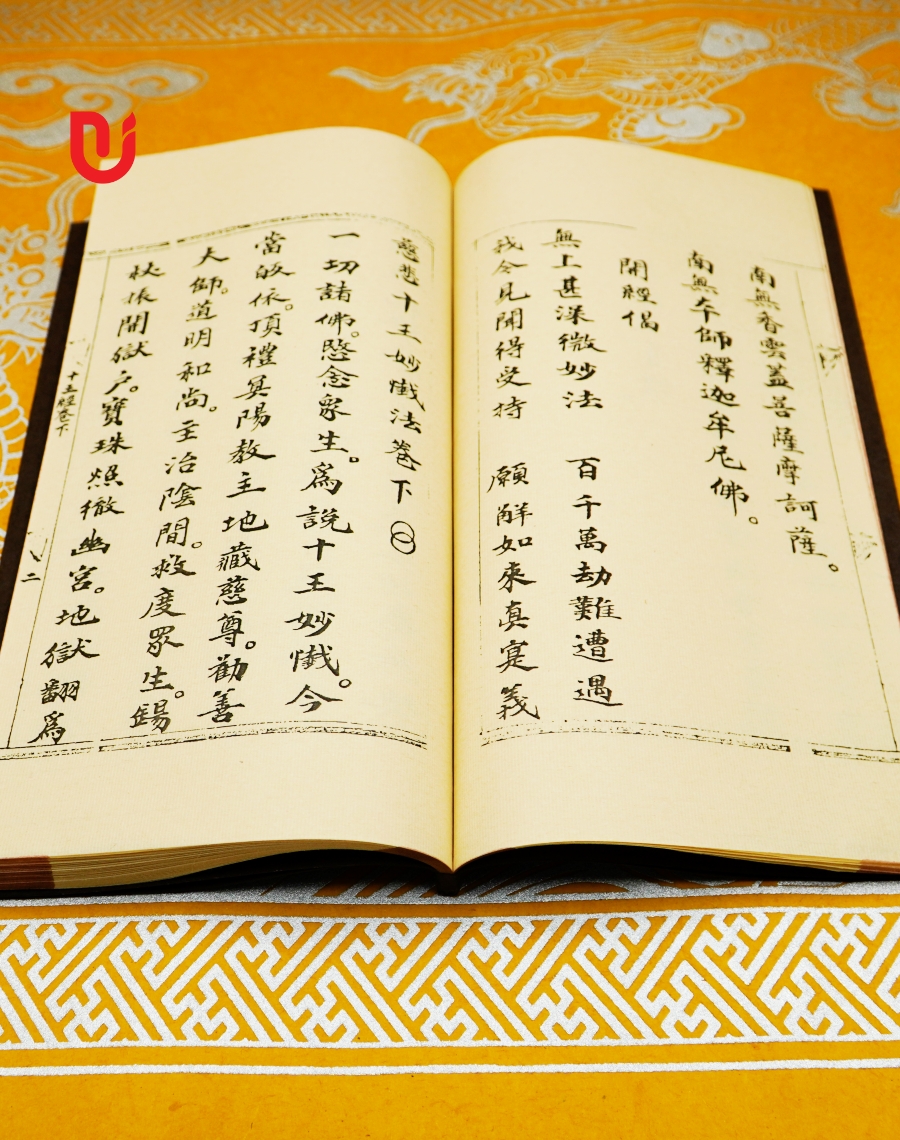 南無香雲蓋菩薩摩訶薩。
南無本師釋迦牟尼佛。
開經偈
無上甚深微妙法　百千萬劫難遭遇
我今見聞得受持　願解如來真寔義
慈悲十王妙懺法卷下
一切諸佛。愍念眾生。為說十王妙懺。今
當皈依。頂禮冥陽教主地藏慈尊。勸善
大師。道明和尚。主治陰間。救度眾生。錫
杖振開獄户。寶珠照徹幽宮。地獄翻為
十王經卷下
二